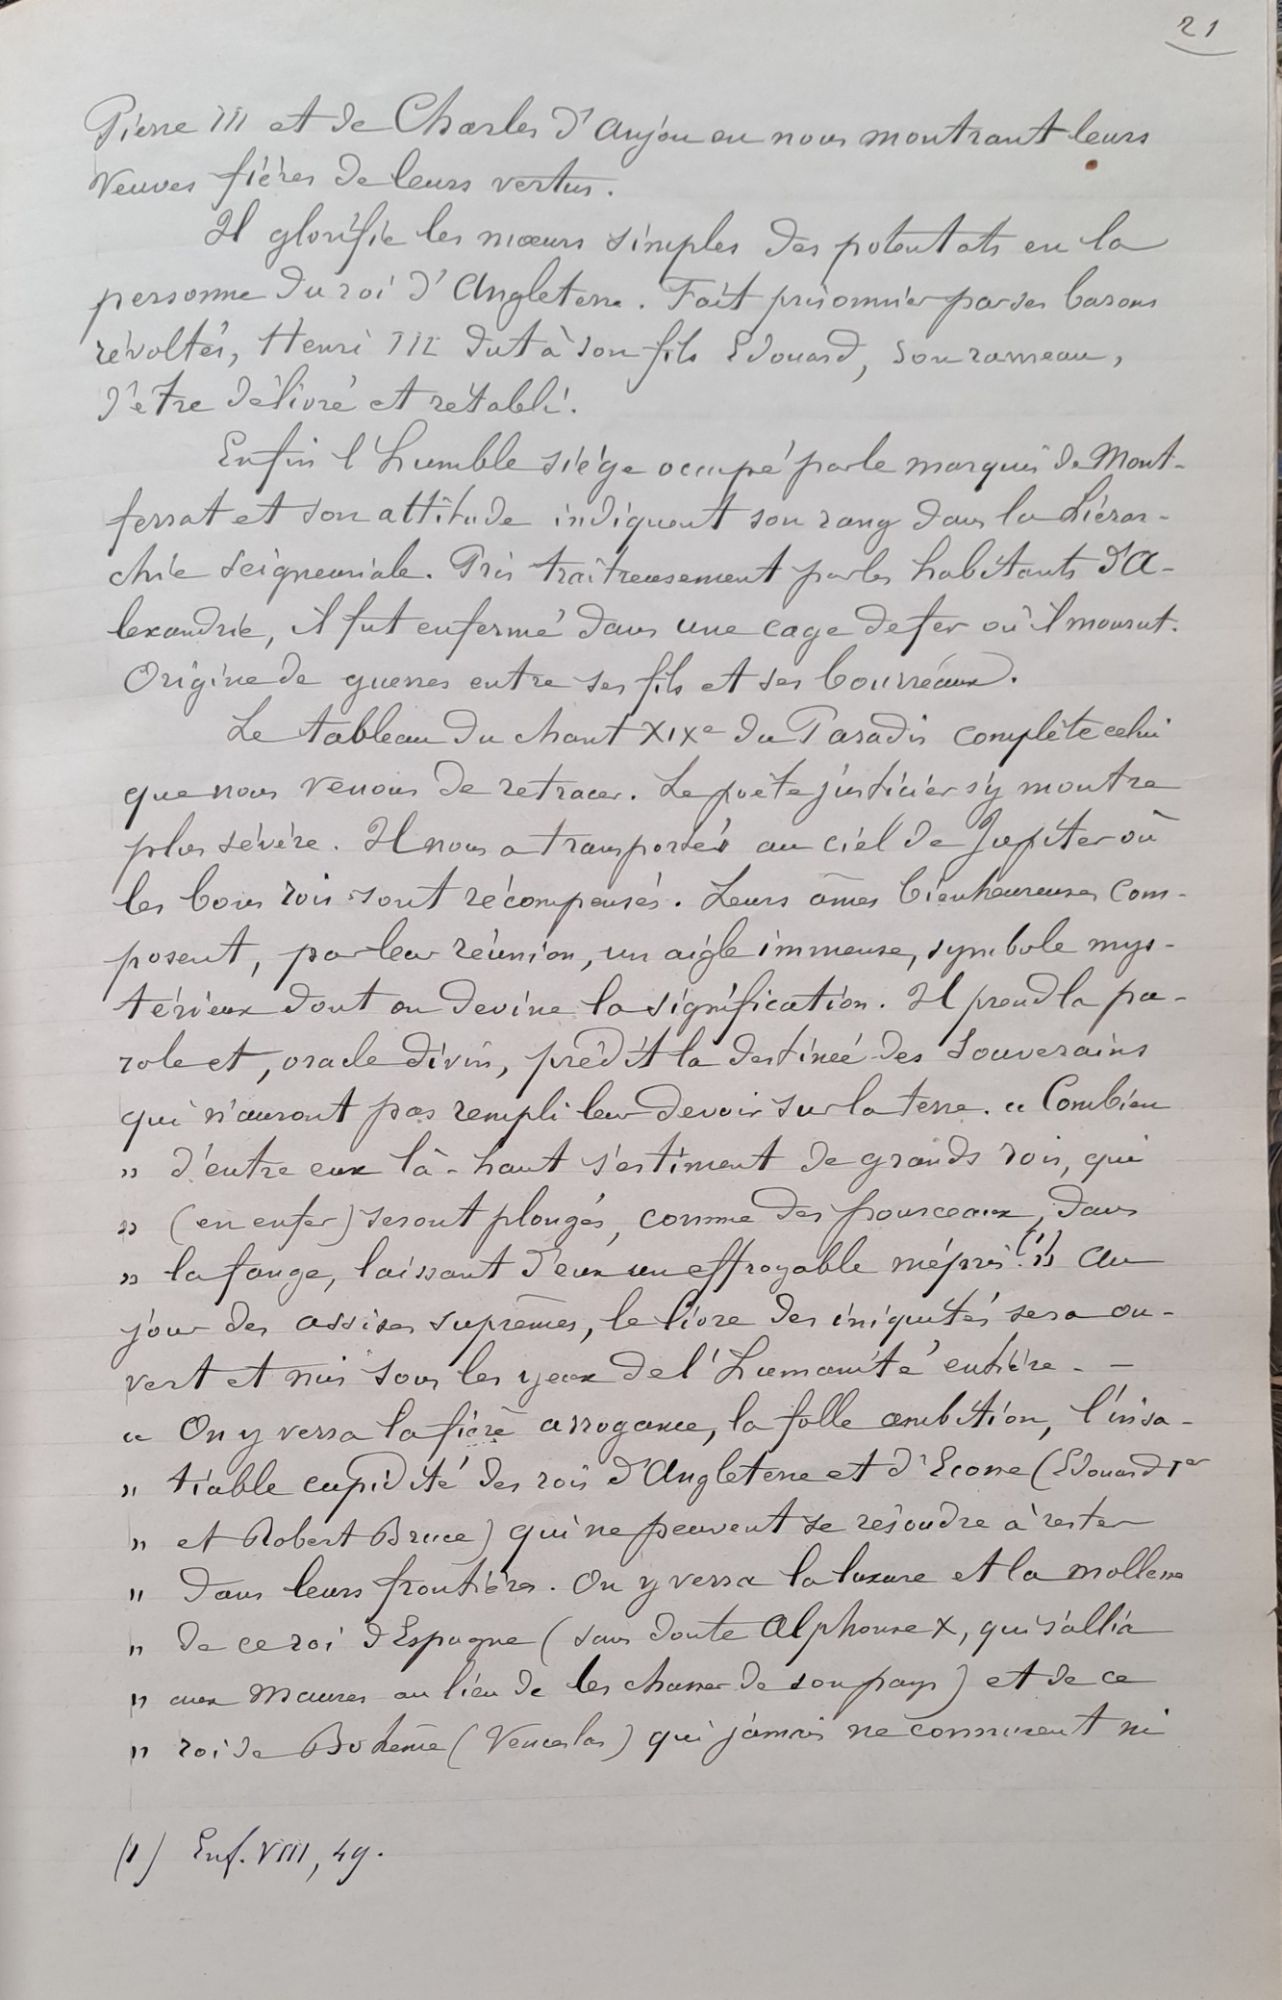 21
Pierre III et de Charles d'Anjou en nous montrant leurs
veuves fières de leurs vertus.
Il glorifie les mœurs simples des potentats en la
personne du roi d'Angleterre. Fait prisonnier par ses barons
révoltés, Henri III dut à son fils Edouard, son rameau,
d'être délivré et rétabli.
Enfin l'humble siège occupé par le marquis de Mont-
ferrat et son attitude indiquent son rang dans la hiérar-
chie seigneuriale. Pris traîtreusement par les habitants d'A-
lexandrie, il fut enfermé dans une cage de fer où il mourut.
Origine de guerres entre ses fils et ses bourreaux.
Le tableau du chant XIXe du Paradis complète celui
que nous venons de retracer. Le poète justicier s'y montre
plus sévère. Il nous a transportés au ciel de Jupiter où
les bons rois sont récompensés. Leurs âmes bienheureuses com-
posent, par leur réunion, un aigle immense, symbole mys-
térieux dont on devine la signification. Il prend la pa-
role et, oracle divin, prédit la destinée des souverains
qui n'auront pas rempli leur devoir sur la terre. « Combien
» d'entre eux là-haut s'estiment de grands rois, qui
» (en enfer) seront plongés, comme des pourceaux, dans
» la fange, laissant d'eux un effroyable mépris (1). » Au
jour des assises suprêmes, le livre des iniquités sera ou-
vert et mis sous les yeux de l'humanité entière. —
« On y verra la fière arrogance, la folle ambition, l'insa-
» tiable cupidité des rois d'Angleterre et d'Ecosse (Edouard Ier
» et Robert Bruce) qui ne peuvent se résoudre à rester
» dans leurs frontières. On y verra la luxure et la mollesse
» de ce roi d'Espagne (sans doute Alphonse X, qui s'allia
» aux Maures au lieu de les chasser de son pays) et de ce
» roi de Bohême (Venceslas) qui jamais ne connurent ni
(1) Enf. VIII, 49.